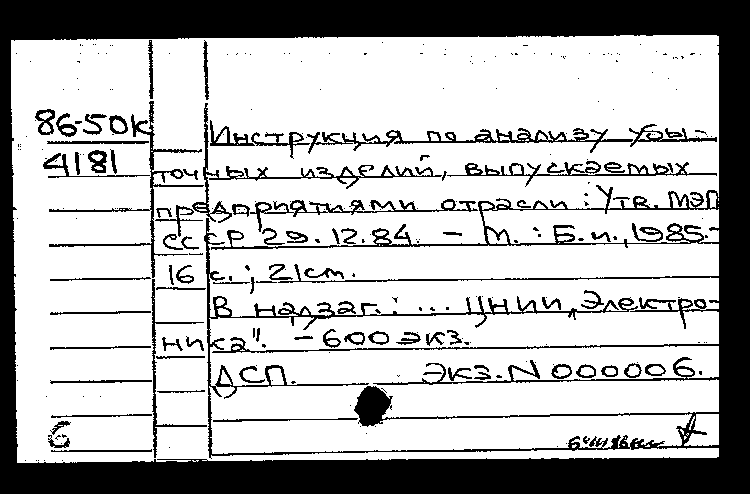 86-50к
4181
Инструкция по анализу убы-
точных изделий, выпускаемых
предприятиями отрасли : Утв. МЭП
СССР 29.12.84. – М. : Б.и., 1985.-
16 с. ; 21см.
В надзаг. : ... ЦНИИ „Электро-
ника". – 600 экз.
ДСП. Экз. N 000006.
6